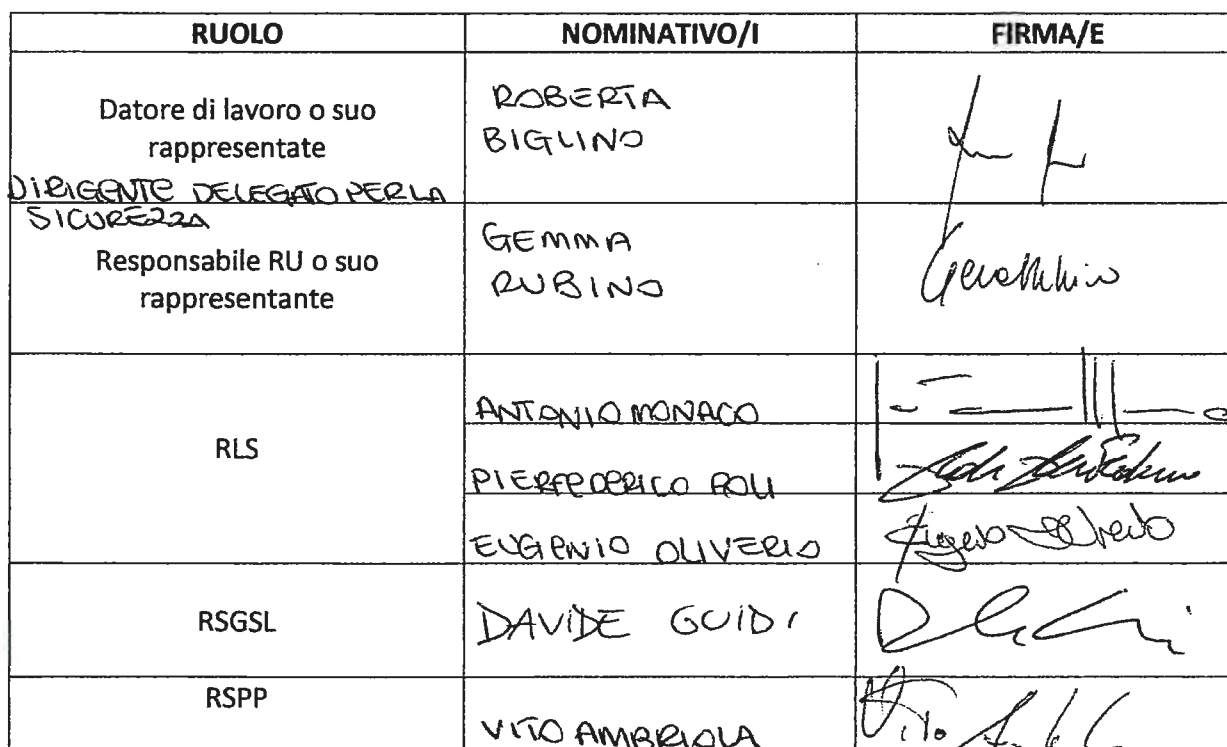 RUOLO NOMINATIVO/I FIRMA/E
Datore di lavoro o suo
rappresentate
DIRIGENTE DELEGATO PER LA
SICUREZZA
ROBERTA
BIGLINO
Responsabile RU o suo
rappresentante
GEMMA
RUBINO
RLS
ANTONIO MONACO
PIERFEDERICO
EUGENIO OLIVERIO
RSGSL DAVIDE GUIDI
RSPP
VITO AMBRIOLA Vito